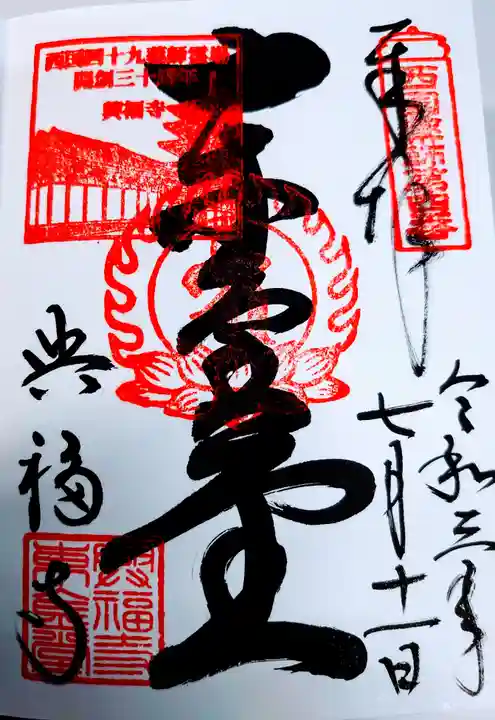 奉拝
令和三年
七月十一日
西国薬師第四番
東金堂
西国四十九薬師霊場
開創三十周年
興福寺
興福寺
興福寺
東金堂